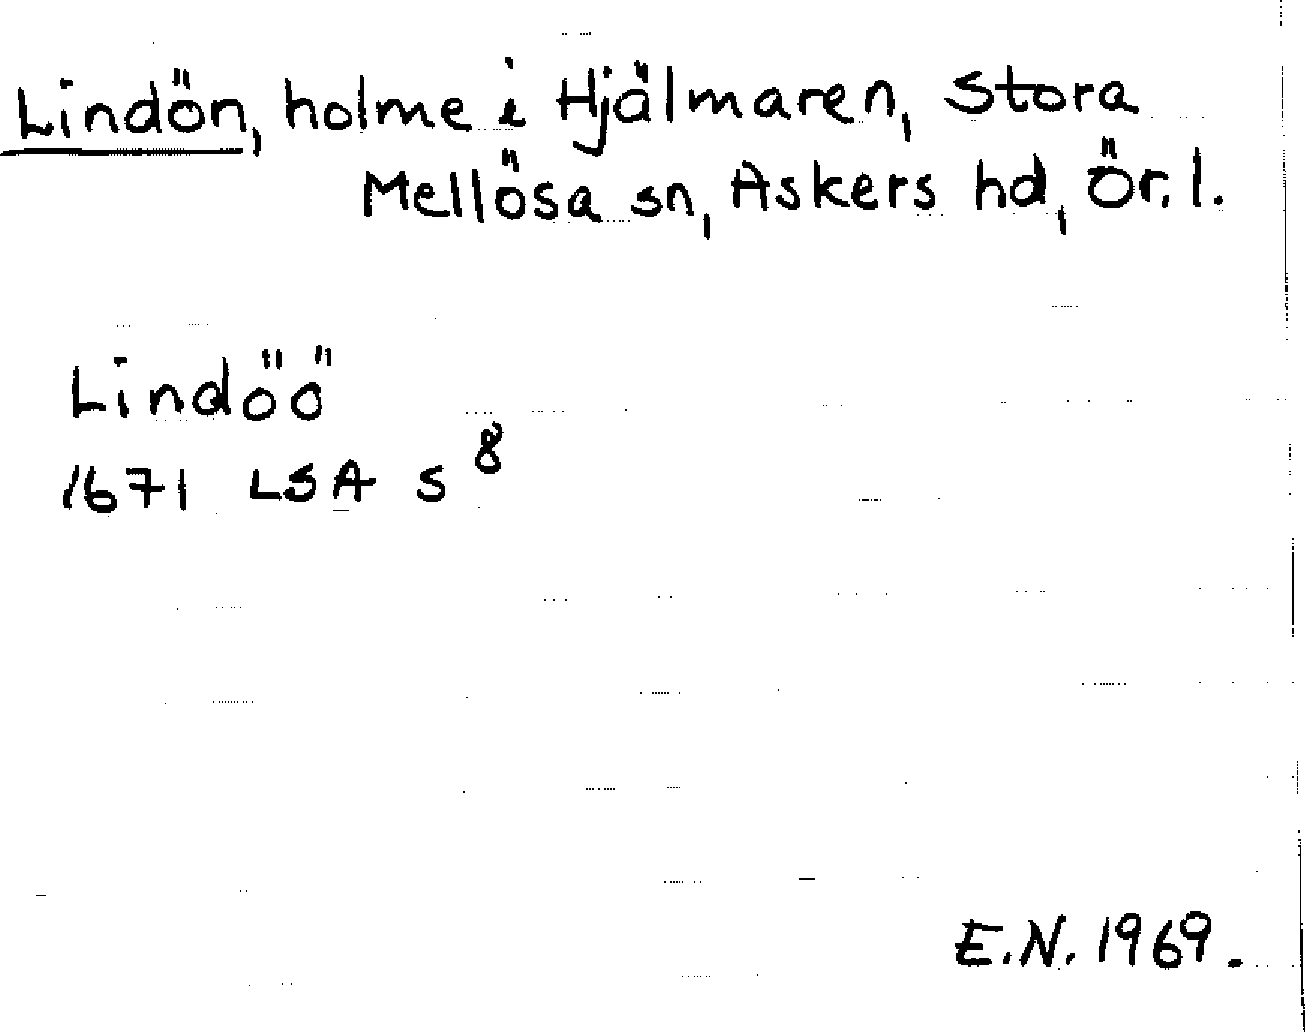 Lindön, holme i Hjälmaren, Stora
Mellösa sn, Askers hd, Ör. l.
Lindöö
1671 LSA S 8
E.N. 1969.